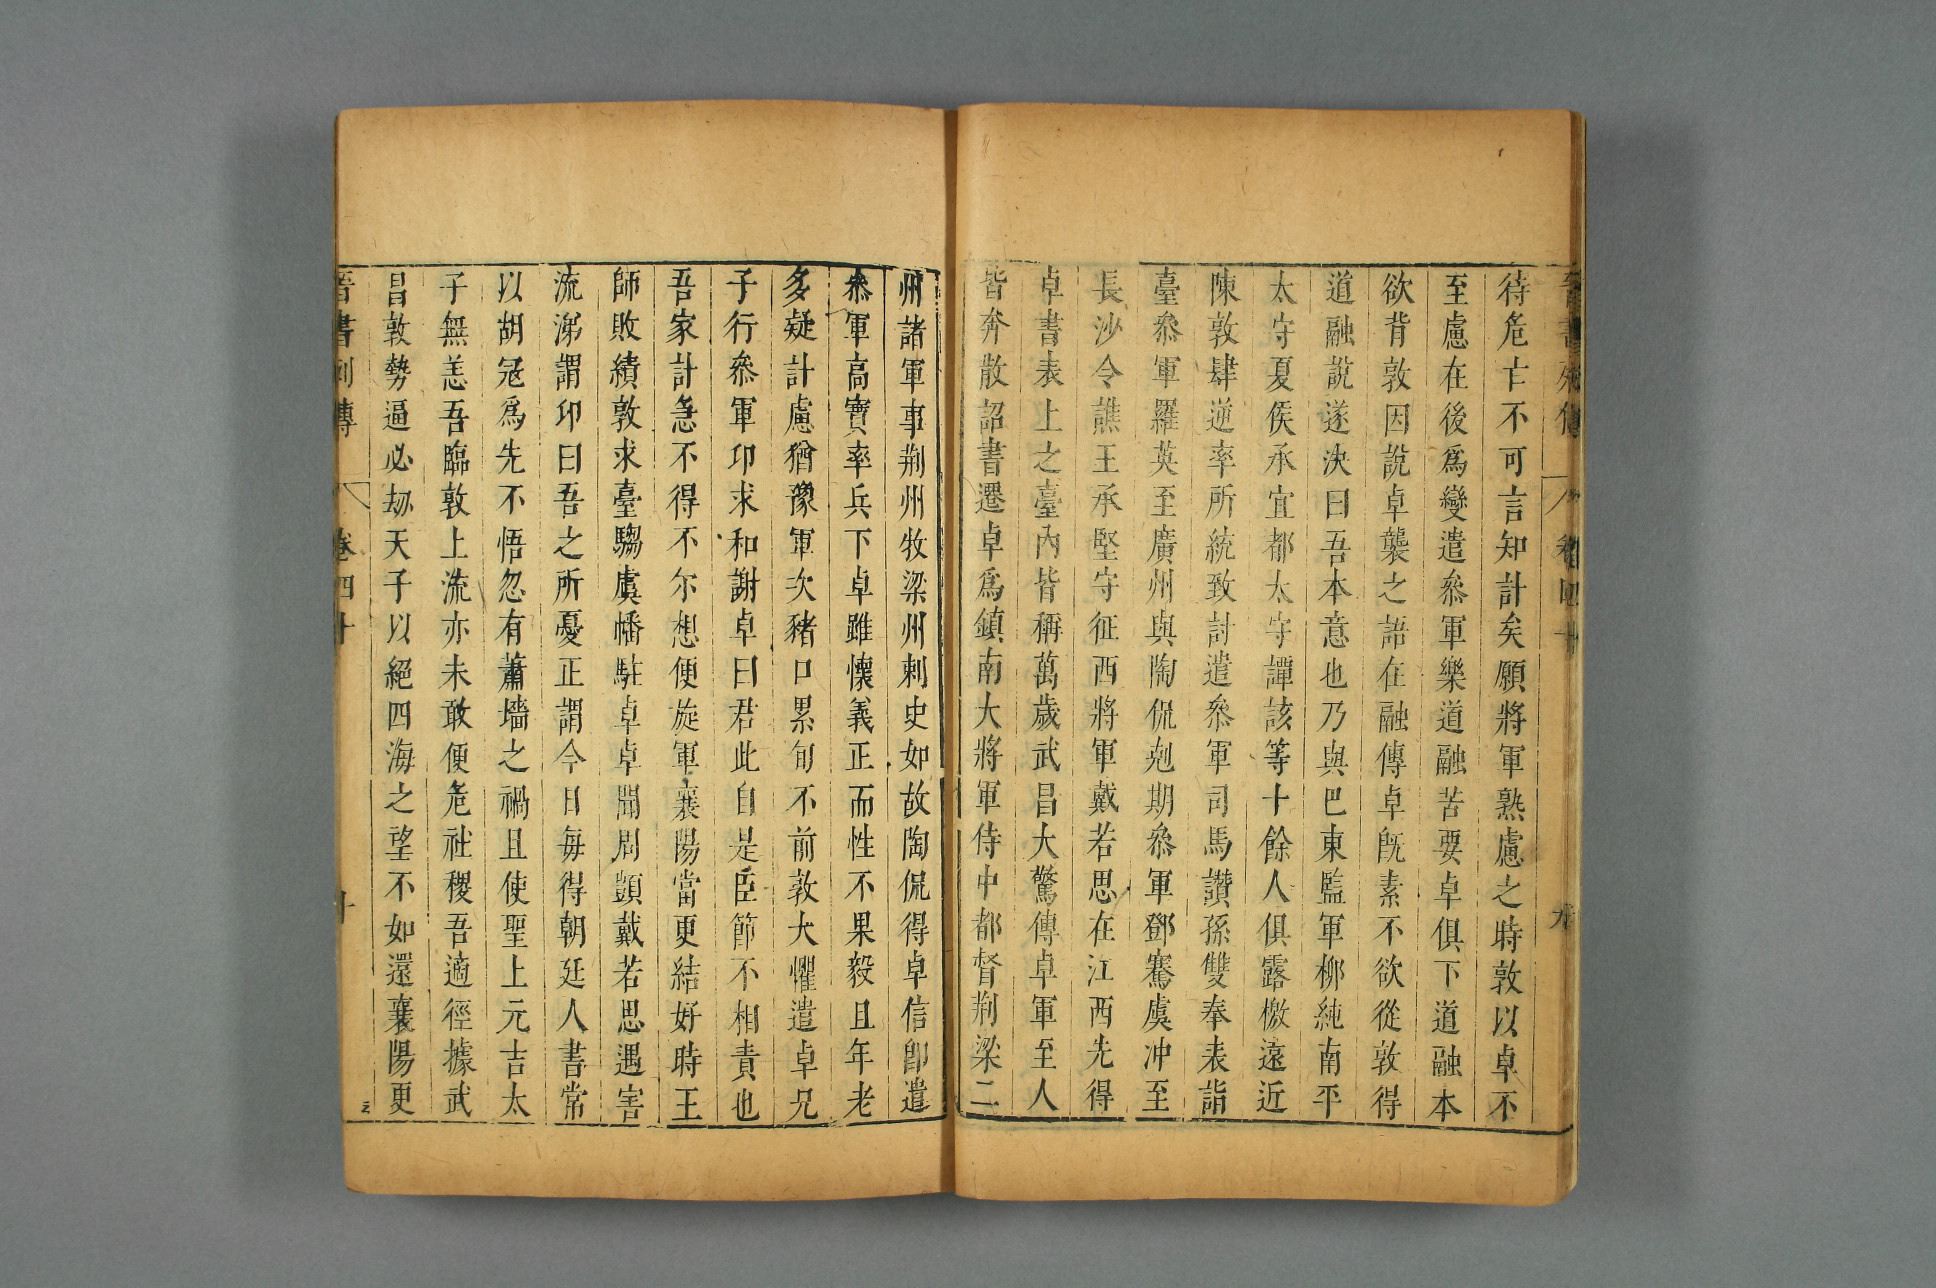 待危亡不可言知計矣願將軍熟慮之時敦以卓不
至慮在後爲變遣叅軍樂道融苦要卓俱下道融本
欲背敦因說卓襲之語在融傳卓旣素不欲從敦得
道融說遂決曰吾本意也乃與巴東監軍柳純南平
太守夏侯承宜都太守譚該等十餘人俱露檄遠近
陳敦肆逆率所統致討遣叅軍司馬讚孫雙奉表詣
臺叅軍羅英至廣州與陶侃剋期叅軍鄧騫虞冲至
長沙令譙王承堅守征西將軍戴若思在江西先得
卓書表上之臺內皆稱萬歲武昌大驚傳卓軍至人
皆奔散詔書遷卓爲鎮南大將軍侍中都督荆梁二
州諸軍事荆州牧梁州刺史如故陶侃得卓信卽遣
叅軍高寶率兵下卓雖懷義正而性不果毅且年老
多疑計慮猶豫軍次豬口累旬不前敦大懼遣卓兄
子行叅軍卬求和謝卓曰君此自是臣節不相責也
吾家計急不得不尔想便旋軍襄陽當更結好時王
師敗績敦求臺騶虞幡駐卓卓聞周顗戴若思遇害
流涕謂卬曰吾之所憂正謂今日每得朝廷人書常
以胡冦爲先不悟忽有蕭墻之禍且使聖上元吉太
子無恙吾臨敦上流亦未敢便危社稷吾適徑據武
昌敦勢逼必劫天子以絕四海之望不如還襄陽更
晉書列傳 卷四十 十